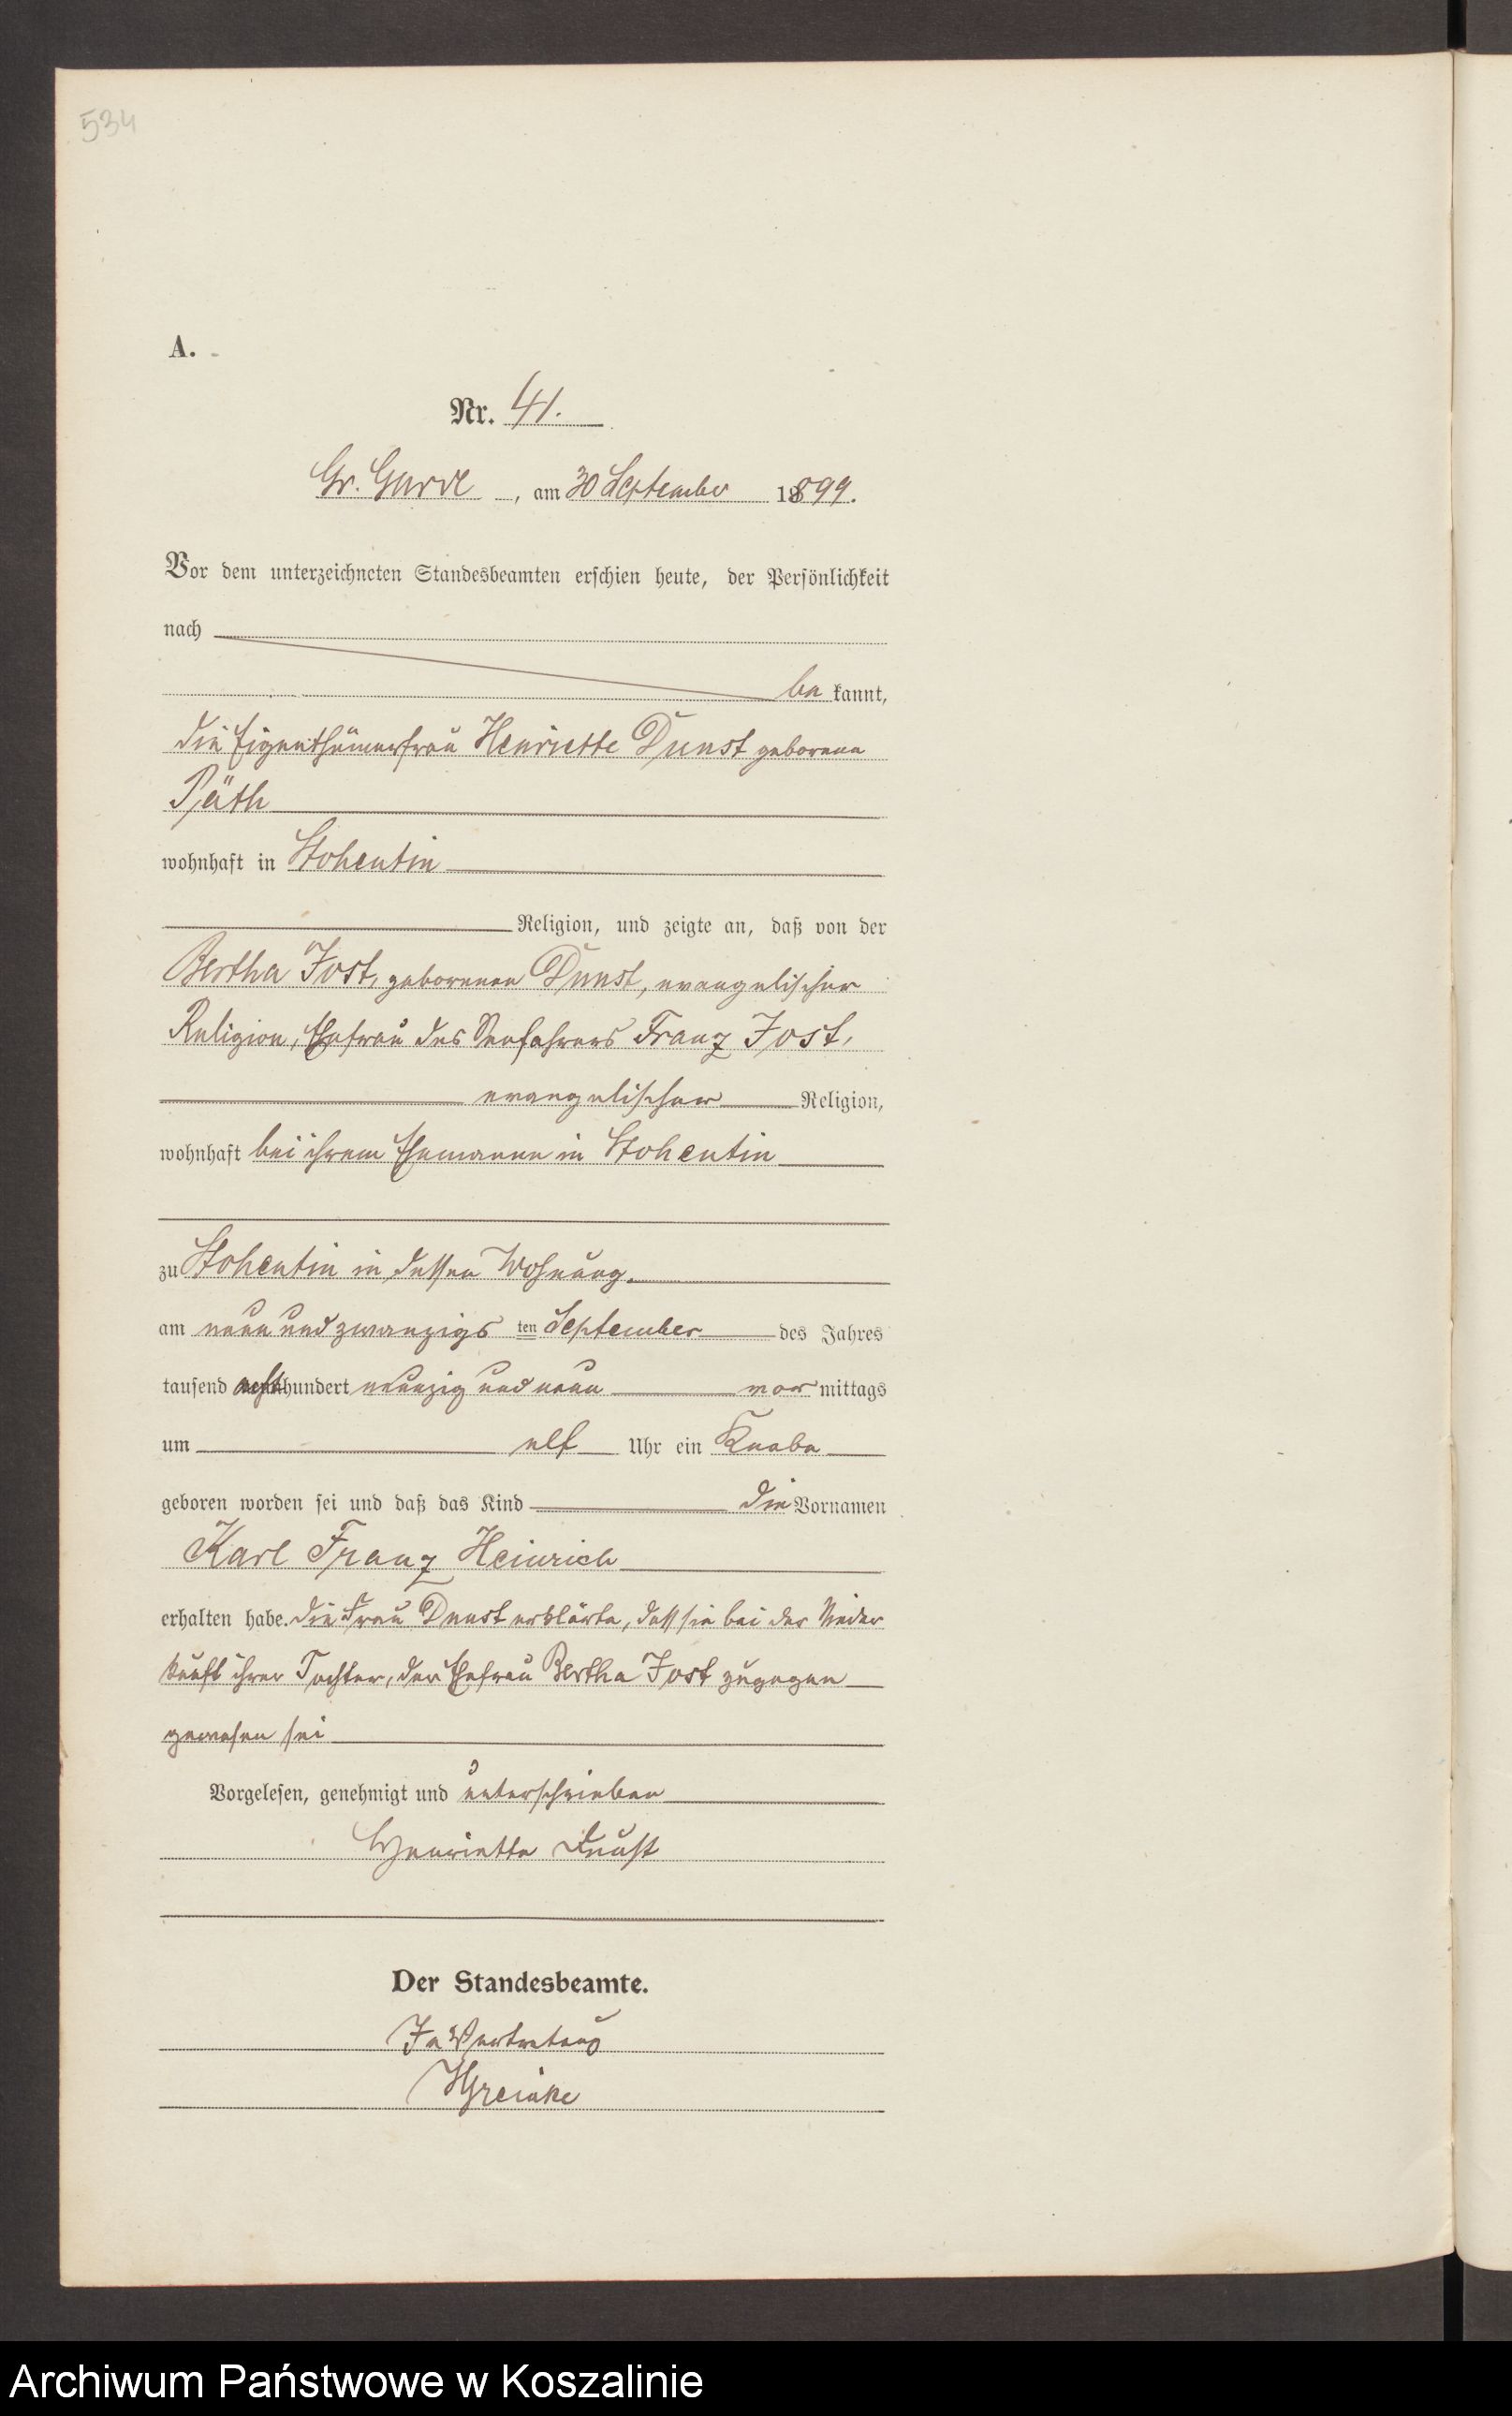 534
A.
Nr. 41.
Gr. Garde, am 30 September 1899.
Vor dem unterzeichneten Standesbeamten erschien heute, der Persönlichkeit
nach
be kannt,
die Eigenthümerfrau Henriette Dunst geborene
Päth
wohnhaft in Stohentin
Religion, und zeigte an, daß von der
Bertha Jost, geborenen Dunst, evangelischer
Religion, Ehefrau des Seefahrers Franz Jost,
evangelischer Religion,
wohnhaft bei ihrem Ehemanne in Stohentin
zu Stohentin in dessen Wohnung.
am neun und zwanzigsten September des Jahres
tausend achthundert neunzig und neun vor mittags
um elf Uhr ein Knabe
geboren worden sei und daß das Kind die Vornamen
Karl Franz Heinrich
erhalten habe. die Frau Dunst erklärte, daß sie bei der Nieder
kunft ihrer Tochter, der Ehefrau Bertha Jost zugegen
gewesen sei
Vorgelesen, genehmigt und unterschrieben
Henriette Dunst
Der Standesbeamte.
In Vertretung
Greinke
Archiwum Państwowe w Koszalinie